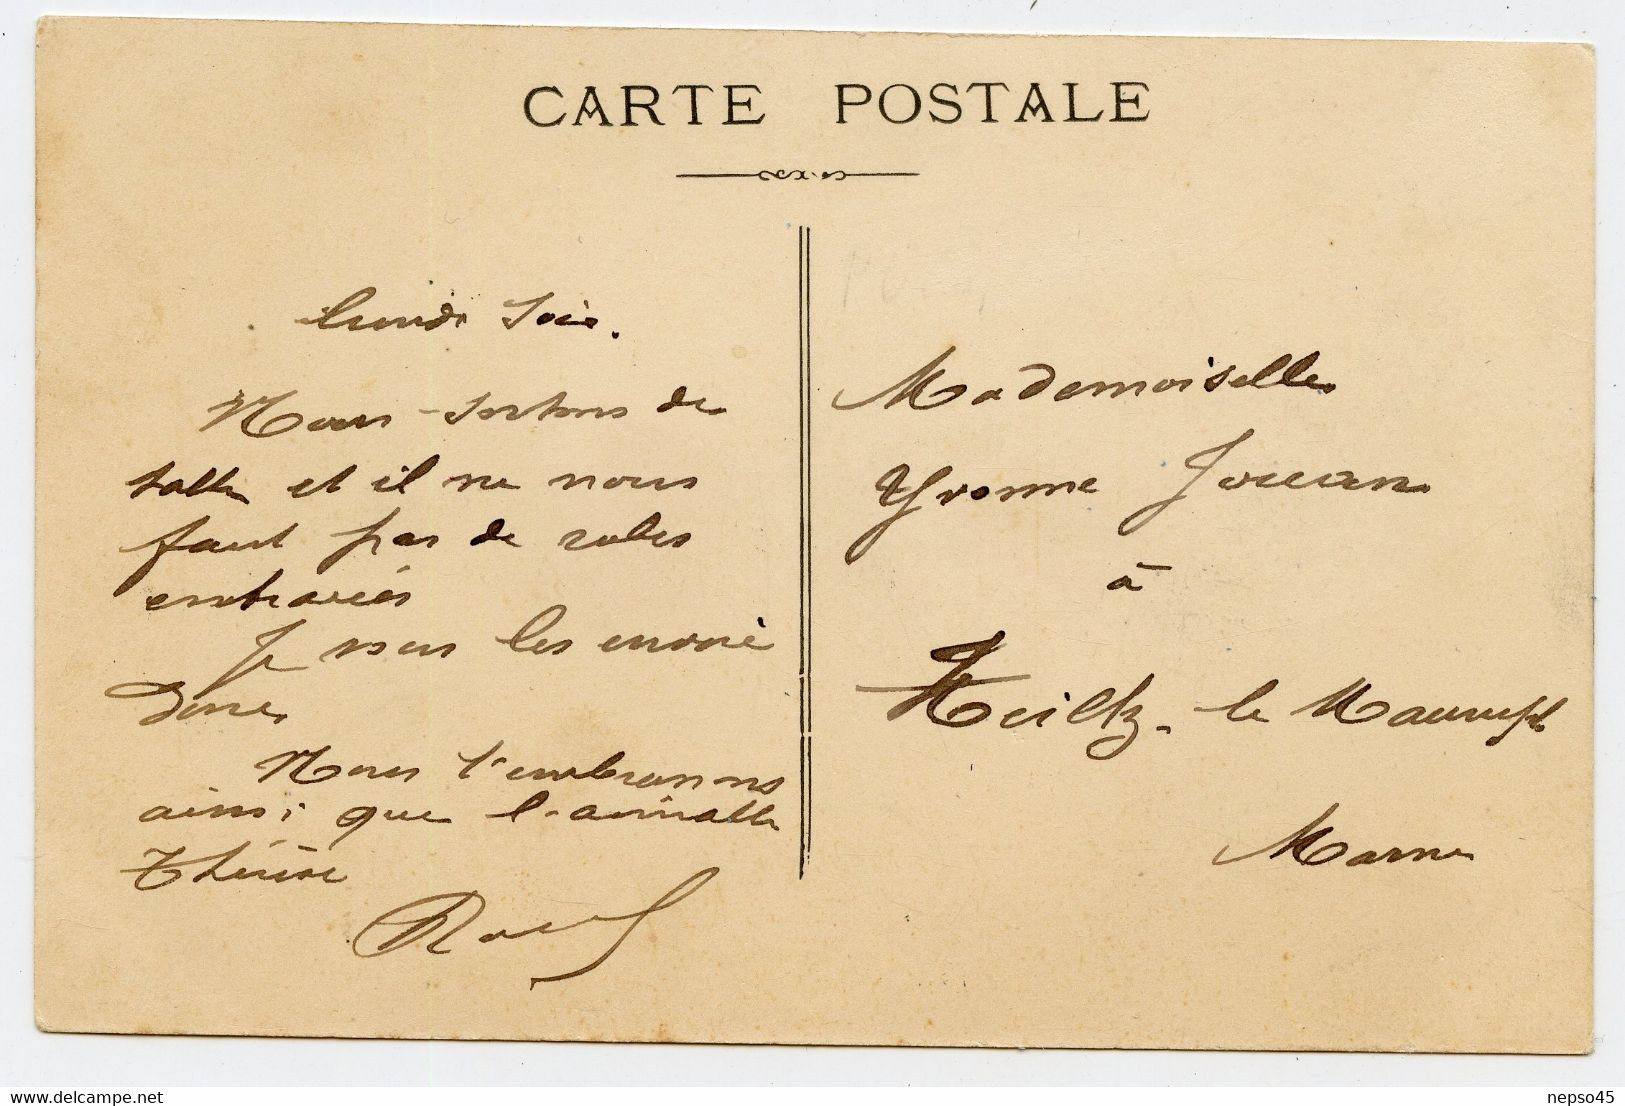 CARTE POSTALE
lundi soir.
Nous sortons de
table et il ne nous
faut pas de robes
Je vous les envoie
donc
Nous t'embrassons
ainsi que l'aimable
Thérèse
Raoul
Mademoiselle
Yvonne Jouan
à
Heiltz-le Maurupt
Marne
www.delcampe.net
nepso45